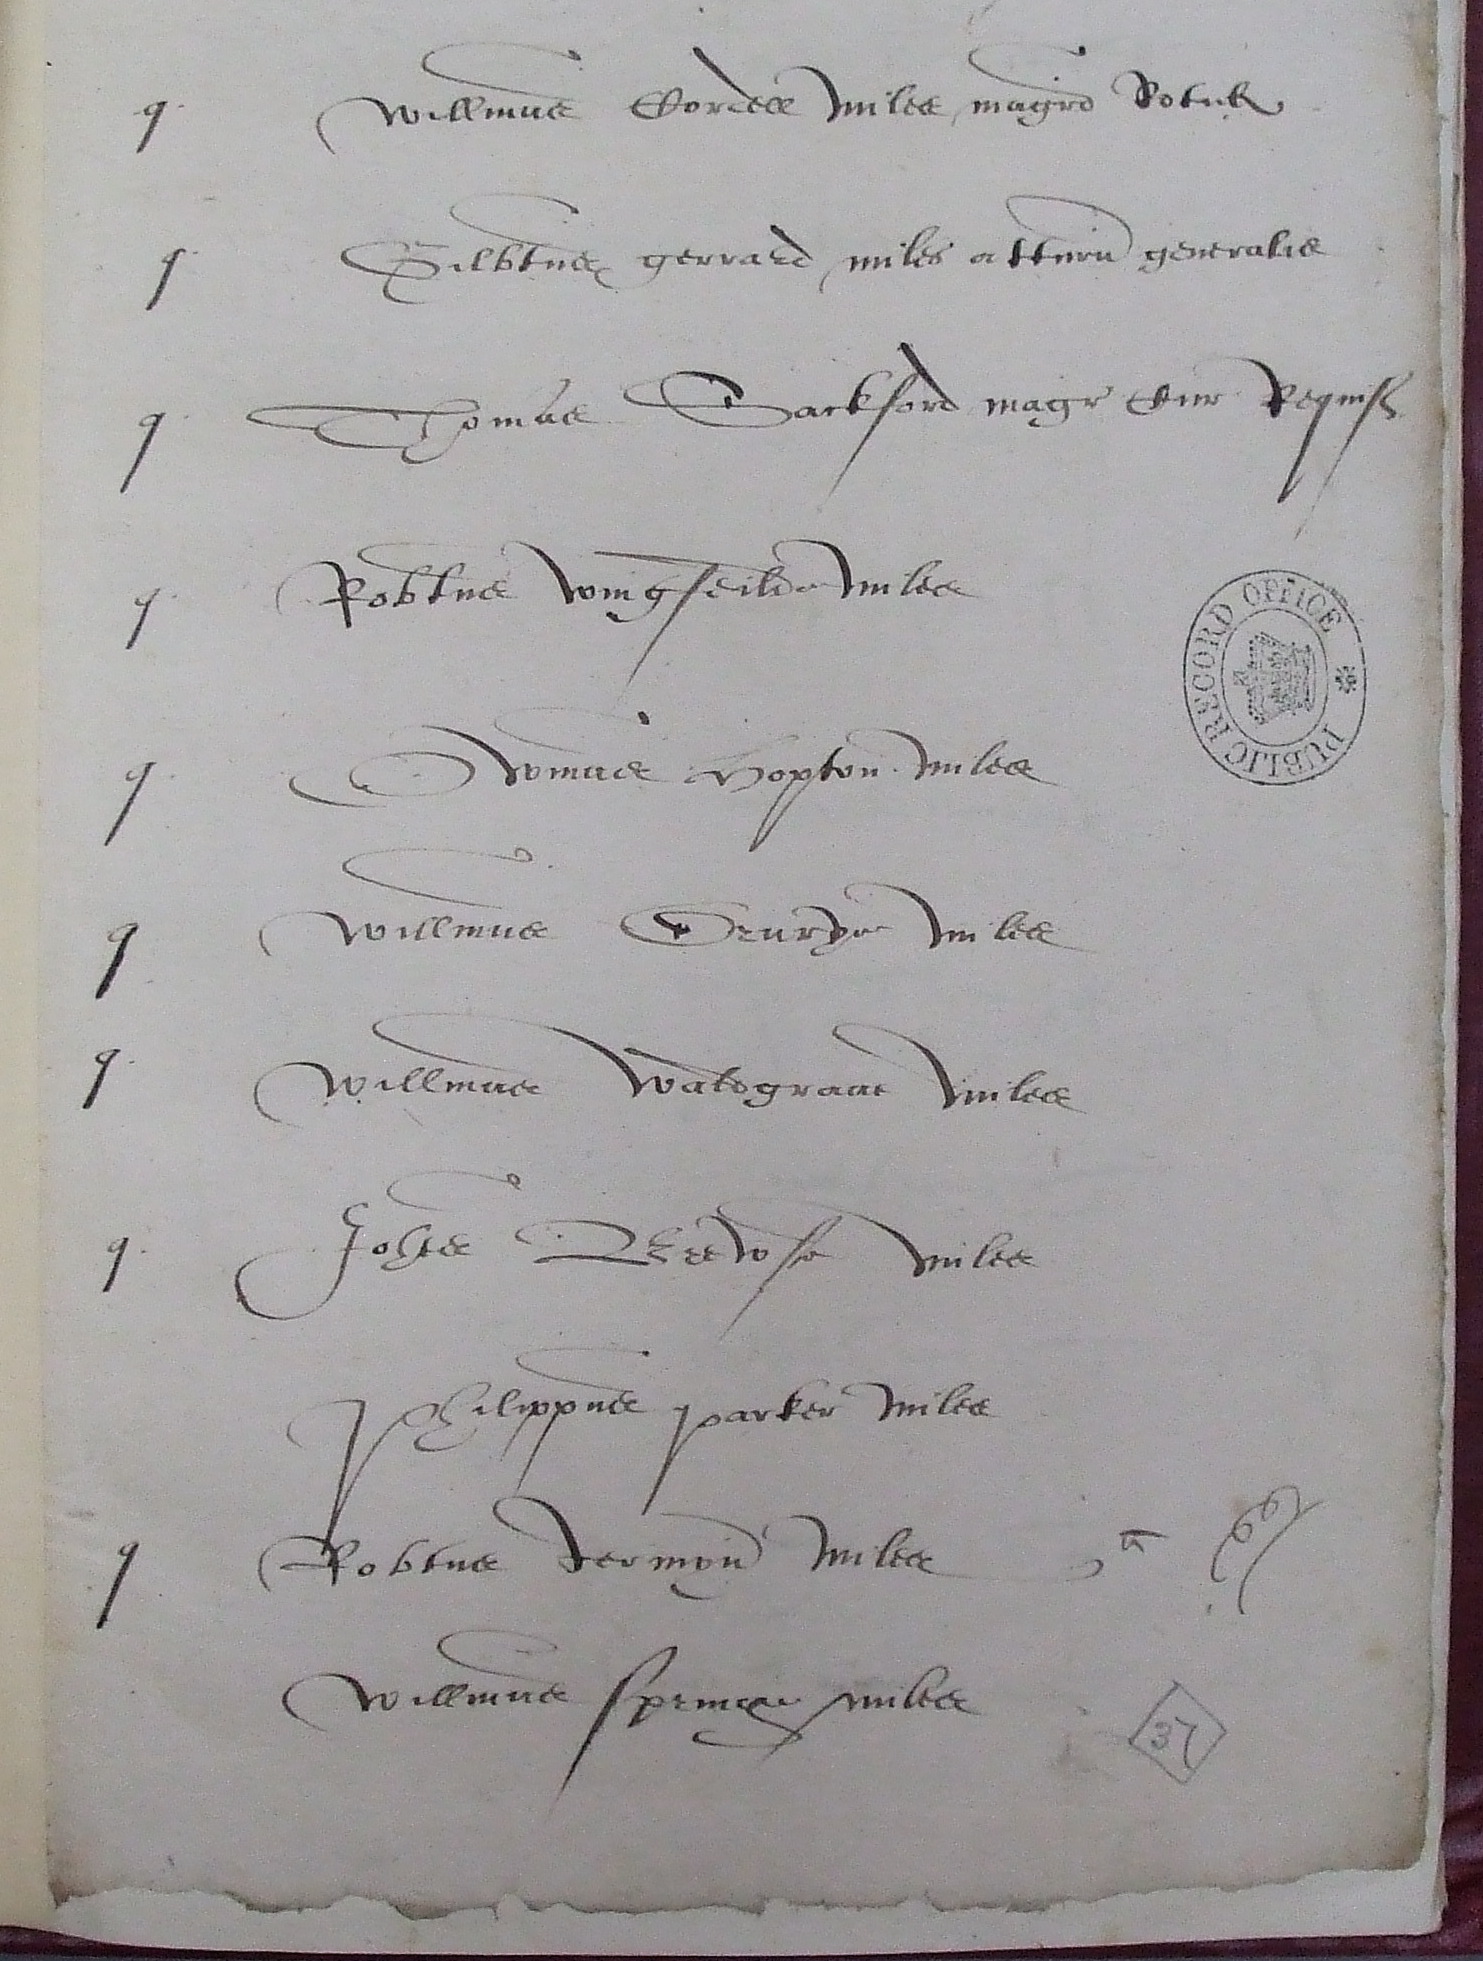 q Willmus Cordell miles magrô Rotul
q Gilbtus gerrard miles attorn generalis
q Thomas Sackford magr Cur Requis
q Robtus wingfeilde miles
q Owinus Hopton miles
q Willmus Drurye miles
q Willmus Waldgraue miles
q Johes Brewse miles
Philippus parker miles
q Robtus Jermyn miles
Willmus springe miles
37
PUBLIC RECORD OFFICE